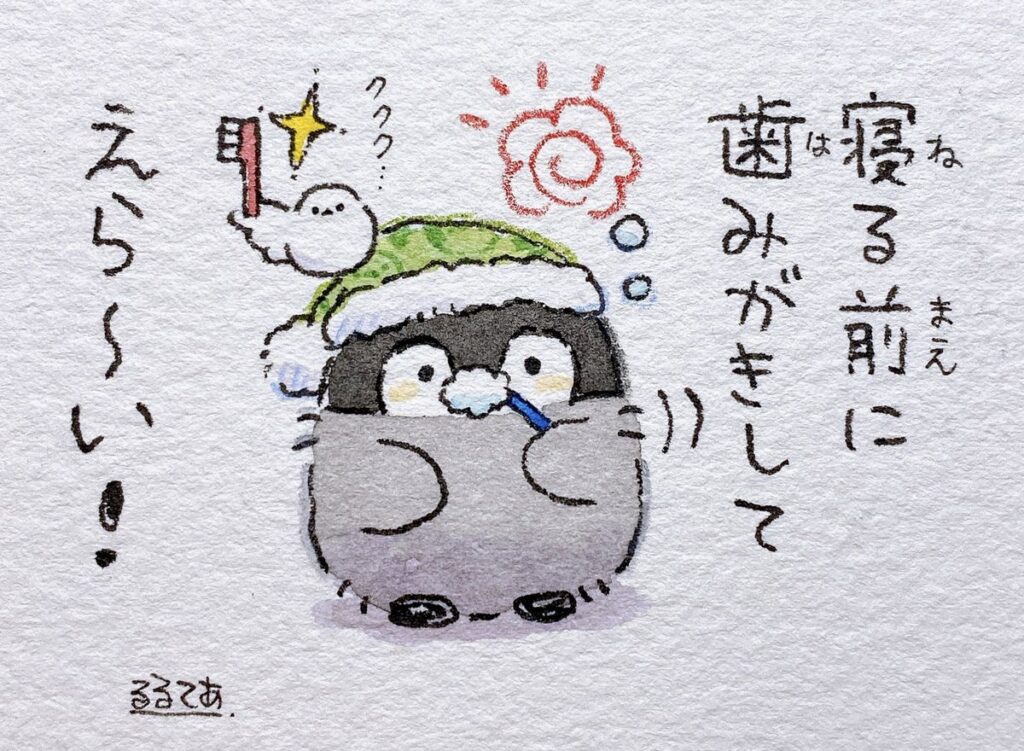 寝る前に
ね
まえ
歯みがきして
は
ククク…
えら〜い！
るるてあ.